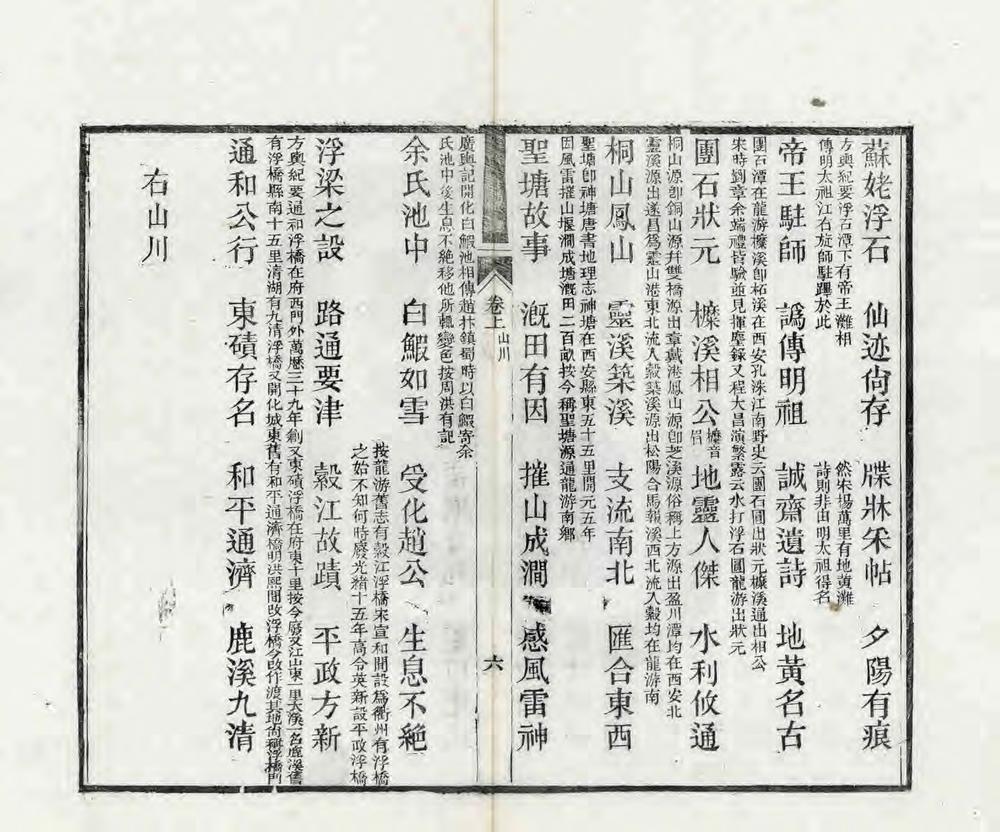 蘇姥浮石　仙迹尙存　牒牀罘帖　夕陽有痕
方輿紀要浮石潭下有帝王灘相
傳明太祖江右旋師駐蹕於此
然宋楊萬里有地黄灘
詩則非由明太祖得名
帝王駐師　譌傳明祖　誠齋遺詩　地黄名古
團石潭在龍游㯉溪卽柘溪在西安孔洙江南野史云團石圓出狀元㯉溪通出相公
宋時劉章余端禮皆驗並見揮麈錄又程大昌演繁露云水打浮石圓龍游出狀元
團石狀元　㯉溪相公　地靈人傑　水利攸通
桐山源卽銅山源幷雙橋源出章戴港鳳山源卽芝溪源俗稱上方源出盈川潭均在西安北
靈溪源出遂昌爲靈山港東北流入縠築溪源出松陽合馬報溪西北流入縠均在龍游南
桐山鳳山　靈溪築溪　支流南北　匯合東西
聖塘卽神塘唐書地理志神塘在西安縣東五十五里開元五年
因風雷摧山堰澗成塘漑田二百畝按今稱聖塘源通龍游南鄕
聖塘故事　漑田有因　摧山成澗　感風雷神
卷上　山川
六
廣輿記開化白鰕池相傳趙抃鎭蜀時以白鰕寄余
氏池中後生息不絶移他所輒變色按周洪有記
余氏池中　白鰕如雪　受化趙公　生息不絶
按龍游舊志有縠江浮橋宋宣和開設爲衢州有浮橋
之始不知何時廢光緒十五年高令英新設平政浮橋
浮梁之設　路通要津　縠江故蹟　平政方新
方輿紀要通和浮橋在府西門外萬厯三十九年剙又東磧浮橋在府東十里按今廢又江山東一里大溪一名鹿溪舊
有浮橋縣南十五里清湖有九清浮橋又開化城東舊有和平通濟橋明洪熙間改浮橋今改作渡其地尚稱浮橋門
通和公行　東磧存名　和平通濟　鹿溪九清
右山川